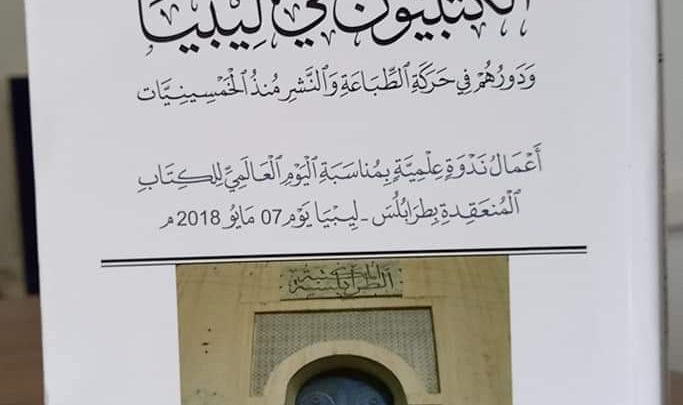 الكُتُبِيُّونَ فِي لِيبْيَا
وَدَوْرُهُمْ فِي حَرَكَةِ الطِّبَاعَةِ وَالنَّشْرِ مُنْذُ الْخَمْسِينِيَّات
أَعْمَالُ نَدْوَةٍ عِلْمِيَّةٍ بِمُنَاسَبَةِ الْيَوْمِ الْعَالَمِيِّ لِلْكِتَابِ
الْمُنْعَقِدَةِ بِطَرَابُلُسَ - لِيبْيَا يَوْم 07 مَايُو 2018 م